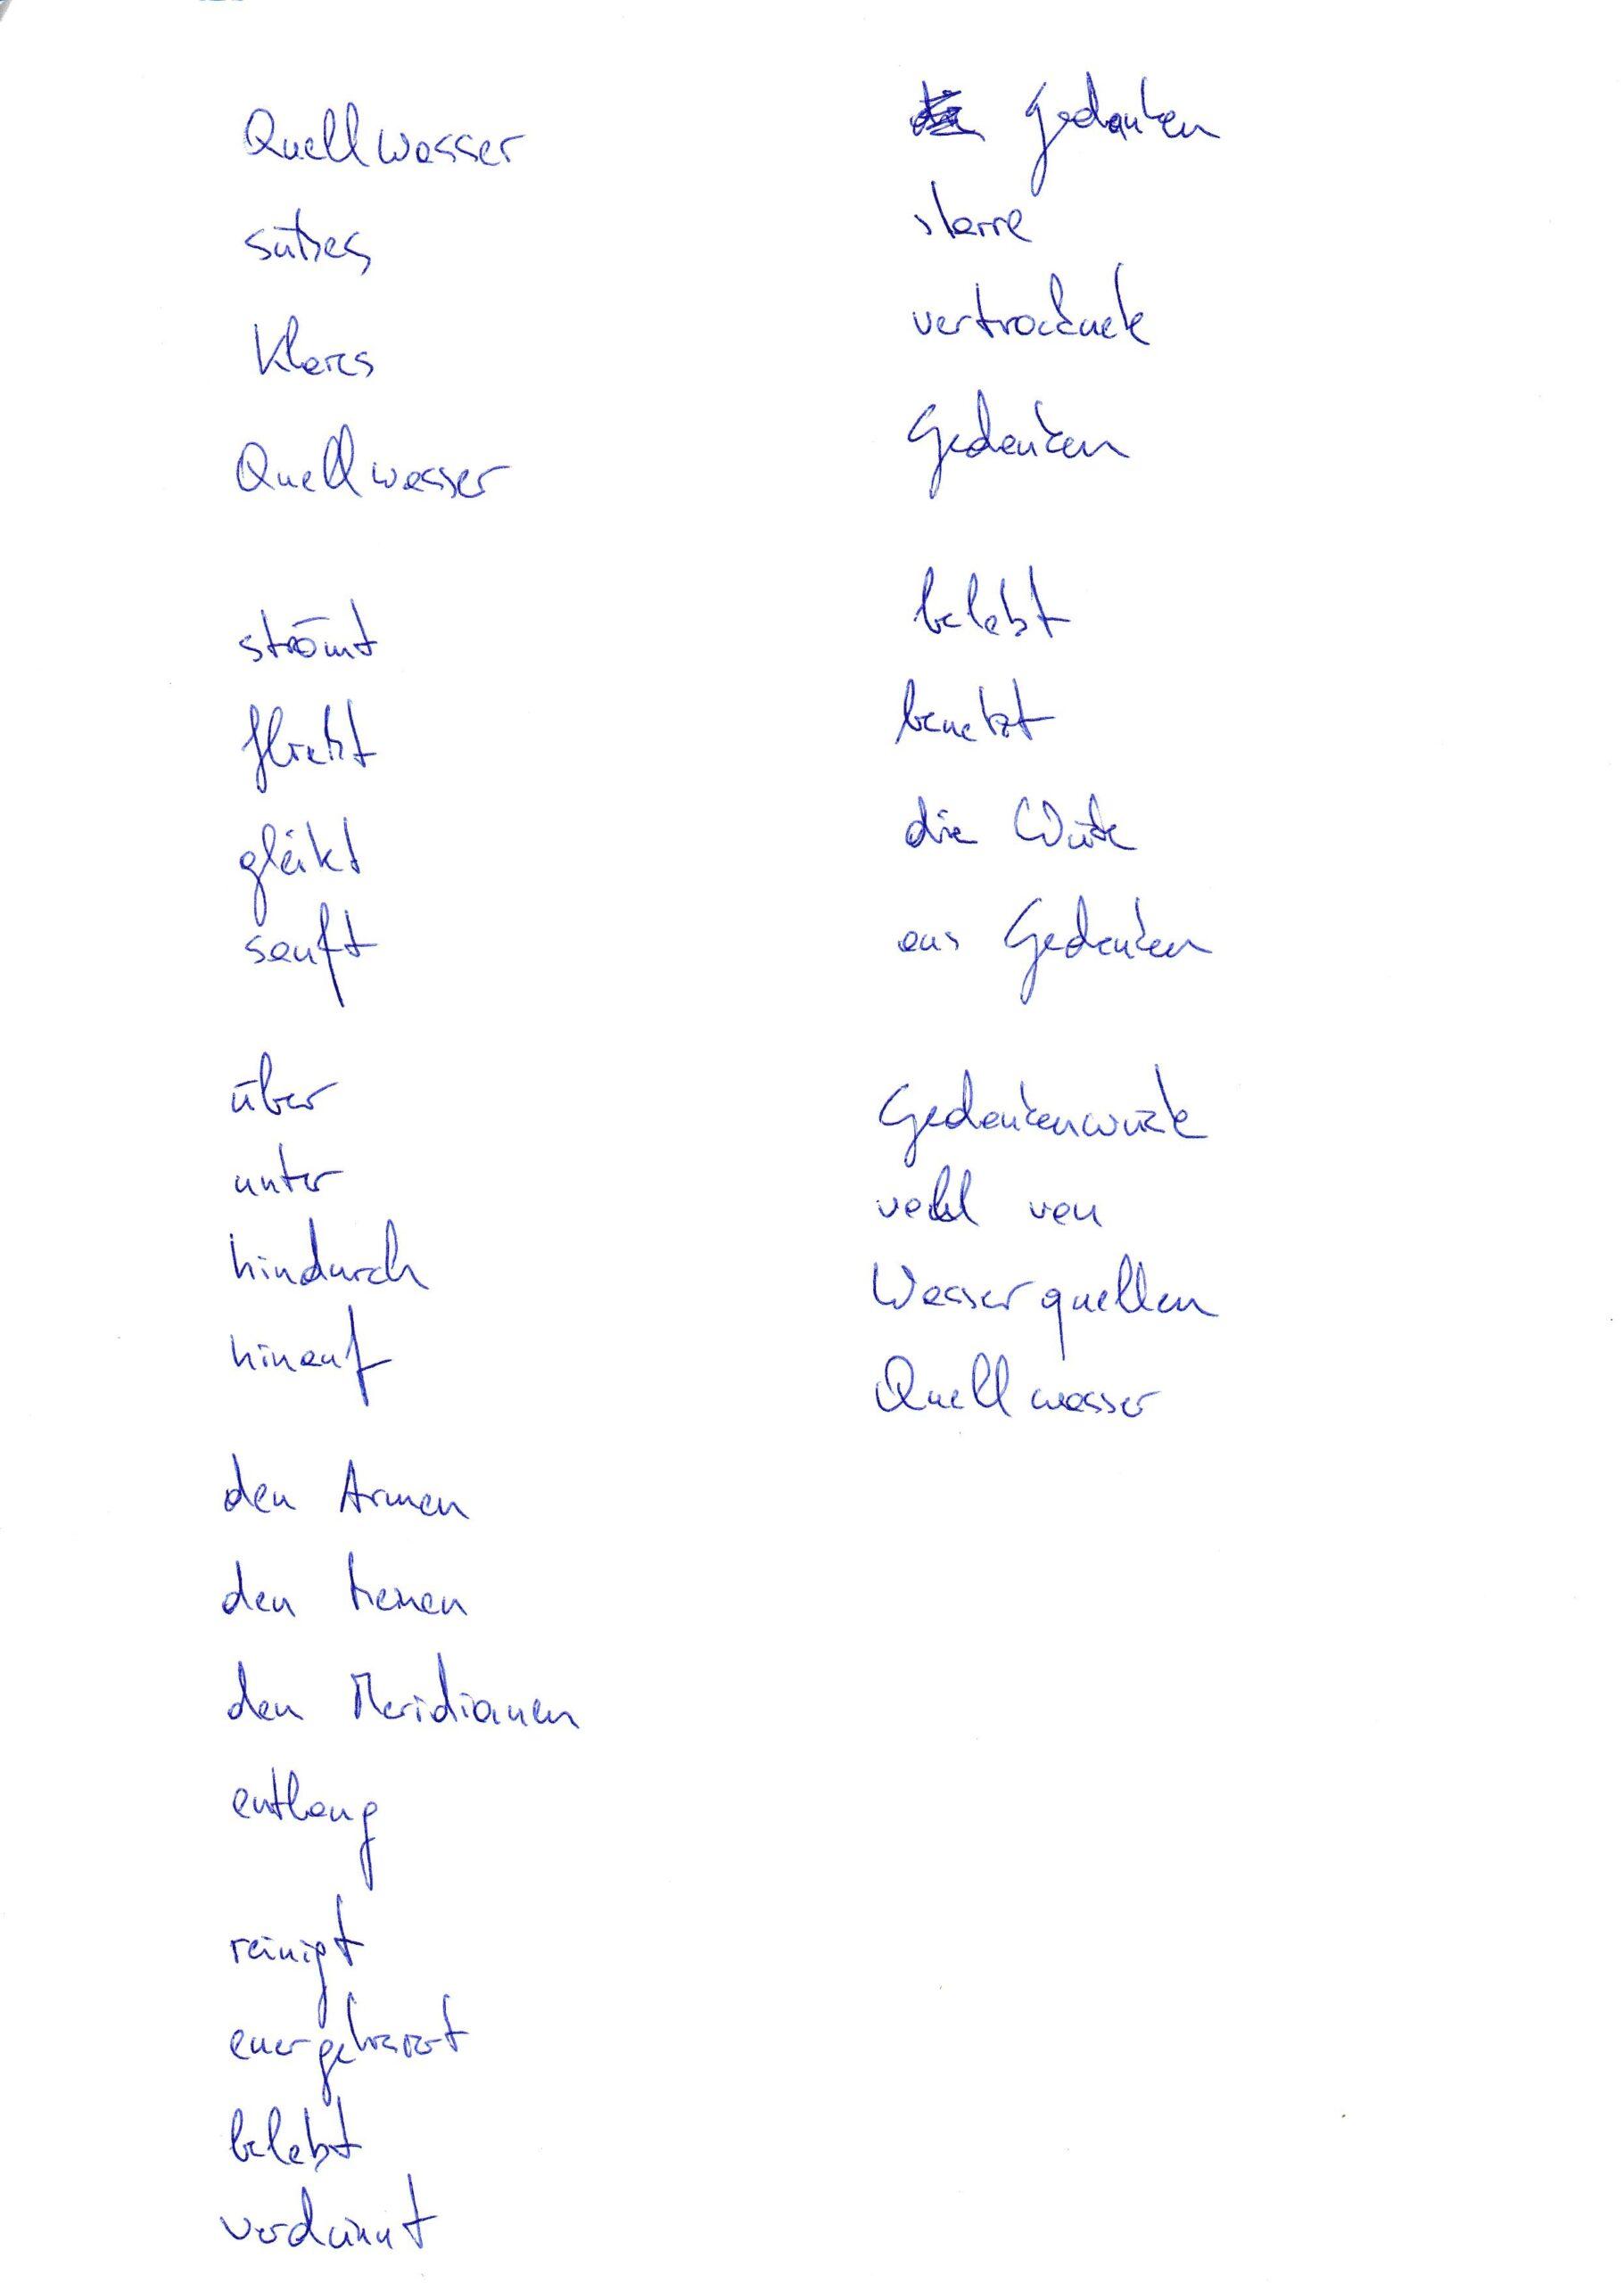 Quellwasser
süßes
klares
Quellwasser
strömt
fließt
gleitet
sanft
über
unter
hindurch
hinauf
den Armen
den Beinen
den Meridianen
entlang
reinigt
energetisiert
belebt
verdünnt
Gedanken
starre
vertrocknete
Gedanken
belebt
benetzt
die Wüste
aus Gedanken
Gedankenwüste
voll von
Wasserquellen
Quellwasser